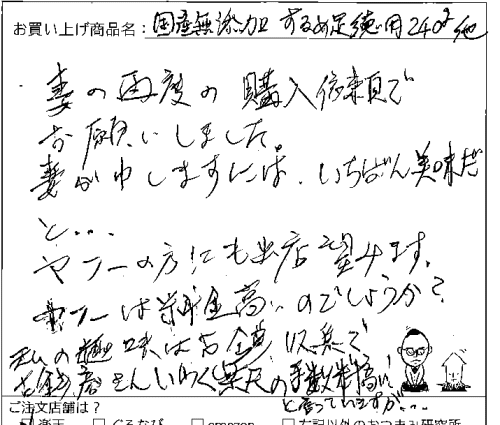 お買い上げ商品名: 国産無添加 するめ足 徳用240g 他
妻の再度の購入依頼で
お願いしました。
妻が申しますには、いちばん美味だ
と...
ヤフーの方にも出店望みます。
ヤフーは料金高いのでしょうか?
私の趣味は古銭収集で
古銭店さんいわく楽天の手数料高い
と言っていますが...
ご注文店舗は?
楽天 □ぐるなび □amazon □左記以外のおつまみ研究所